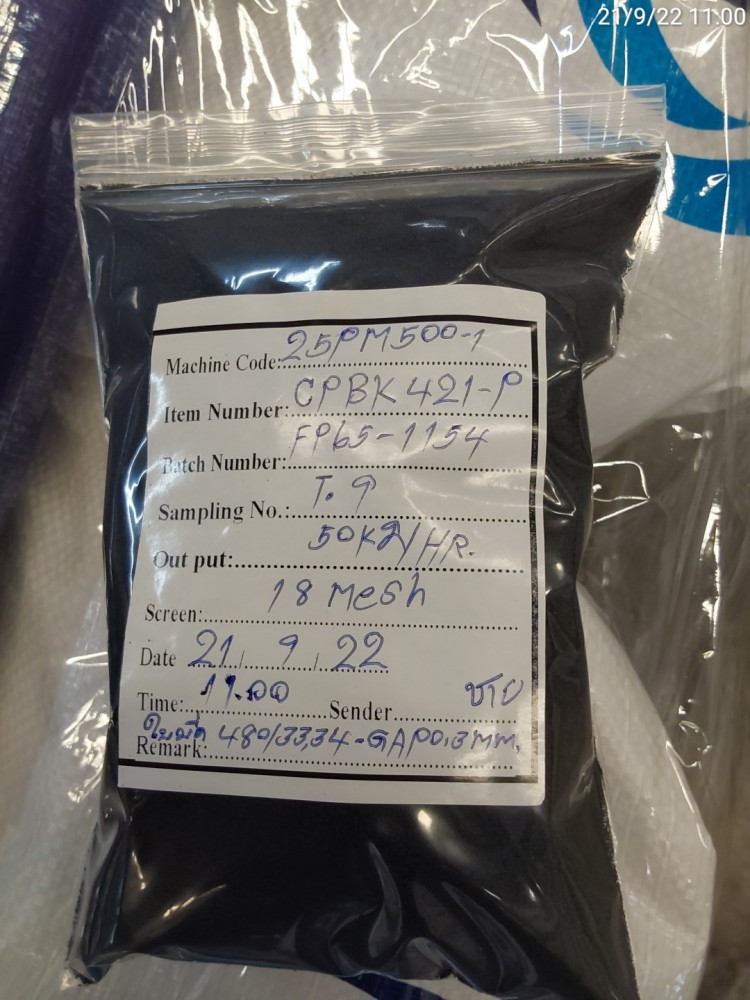 21/9/22 11:00
Machine Code: 25PM500-1
Item Number: CPBK421-P
Batch Number: FP65-1154
Sampling No.: T. 9
Out put: 50Kg/HR.
Screen: 18 Mesh
Date 21 / 9 / 22
Time: 11.00 Sender ชาย
ใบมีด
Remark: 480/33,34-GAP0.3MM.